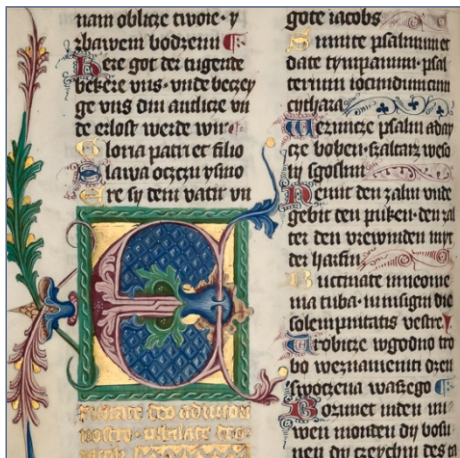 nam oblicze twoie · y
zbawem bodzemi
Here got der tugente
bekere vns · vnde beczey
ge vns din anlicze vn
de erlost werde wir
Gloria patri et filio
Slawa oczczu y sino
Ere sy dem vatir vn
Exultate deo adiutori
nostro · iubilate deo
iacob
gote iacobs
Sumite psalmum et
date tympanum · psal
terium iocundum cum
cythara
Wezmicze psalm a day
cze boben · szaltarz weso
ly sgoslmi
Nemit den zalm vnde
gebit den puken · den zal
ter den vrewinden myt
der harfin
Buccinate in neome
nia tuba · in insigni die
solempnitatis vestre
Trobicze w godno tro
bo weznameniti dzen
swoczena waszego
Bozunet in den nu
wen monden dy bosu
nen dy czeychin des ta